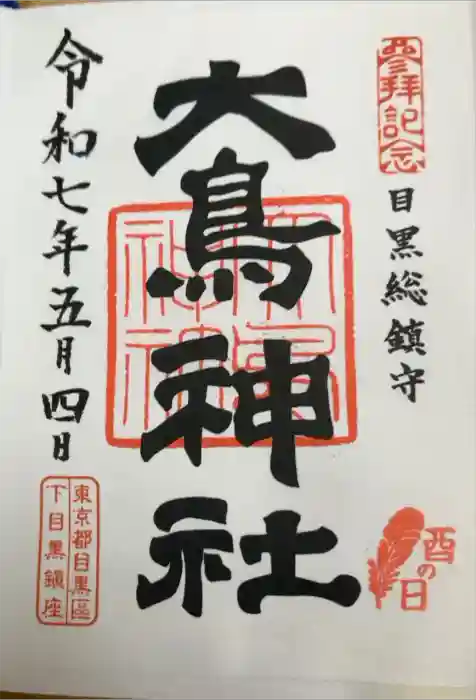 參拝記念
目黒総鎮守
酉の日
大鳥神社
大鳥
神社
令和七年五月四日
東京都目黒區
下目黒鎮座